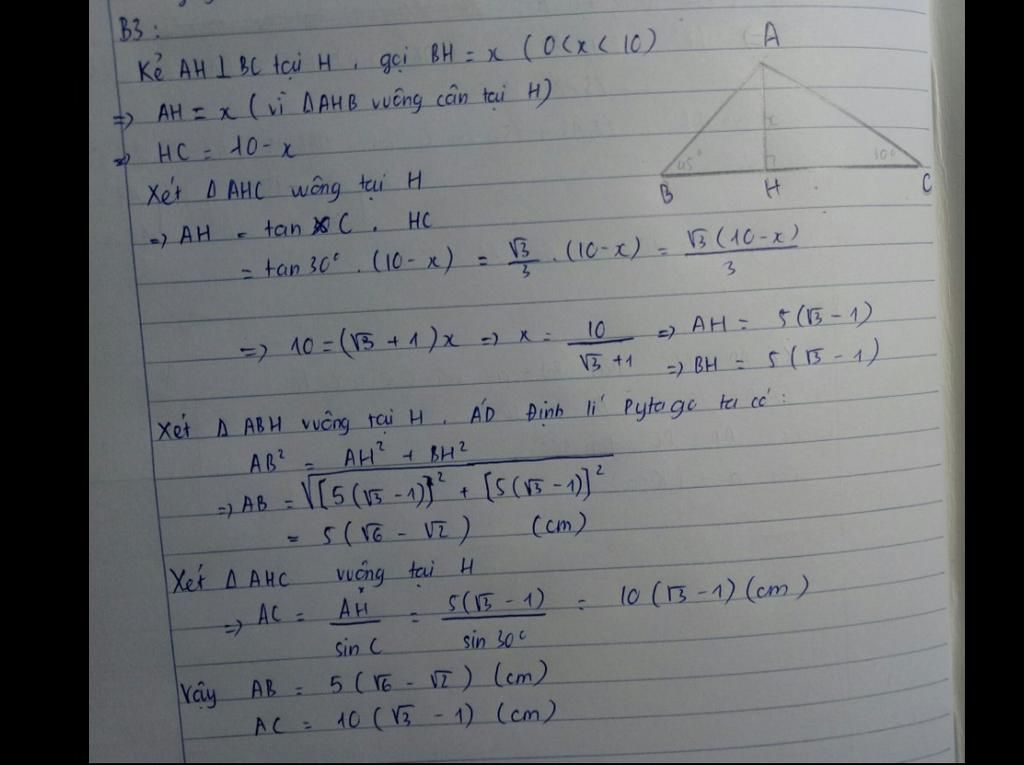 B3:
Kẻ AH ⊥ BC tại H, gọi BH = x (0 < x < 10)
⇒ AH = x (vì ΔAHB vuông cân tại H)
⇒ HC = 10 - x
Xét ΔAHC vuông tại H
⇒ AH = tan C . HC
= tan 30° . (10 - x) = √3/3 . (10 - x) = √3(10 - x)/3
⇒ 10 = (√3 + 1)x ⇒ x = 10/(√3 + 1) ⇒ AH = 5(√3 - 1)
⇒ BH = 5(√3 - 1)
Xét Δ ABH vuông tại H, ÁD Định lí Pytago ta có:
AB² = AH² + BH²
⇒ AB = √([5(√3 - 1)]² + [5(√3 - 1)]²)
= 5(√6 - √2) (cm)
Xét Δ AHC vuông tại H
⇒ AC = AH/sin C = 5(√3 - 1)/sin 30° = 10(√3 - 1) (cm)
Vậy AB = 5(√6 - √2) (cm)
AC = 10(√3 - 1) (cm)
A
x
45°
30°
B
H
C